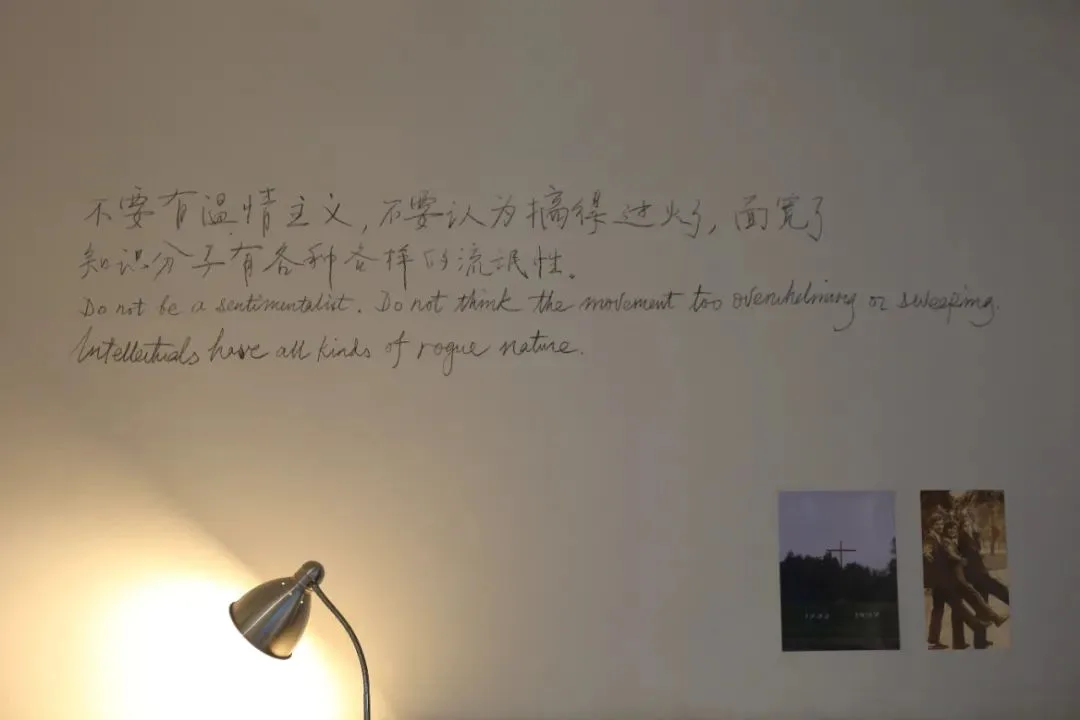 不要有温情主义，不要认为搞得过火了，面宽了
知识分子有各种各样的流氓性。
Do not be a sentimentalist. Do not think the movement too overwhelming or sweeping.
Intellectuals have all kinds of rogue nature.